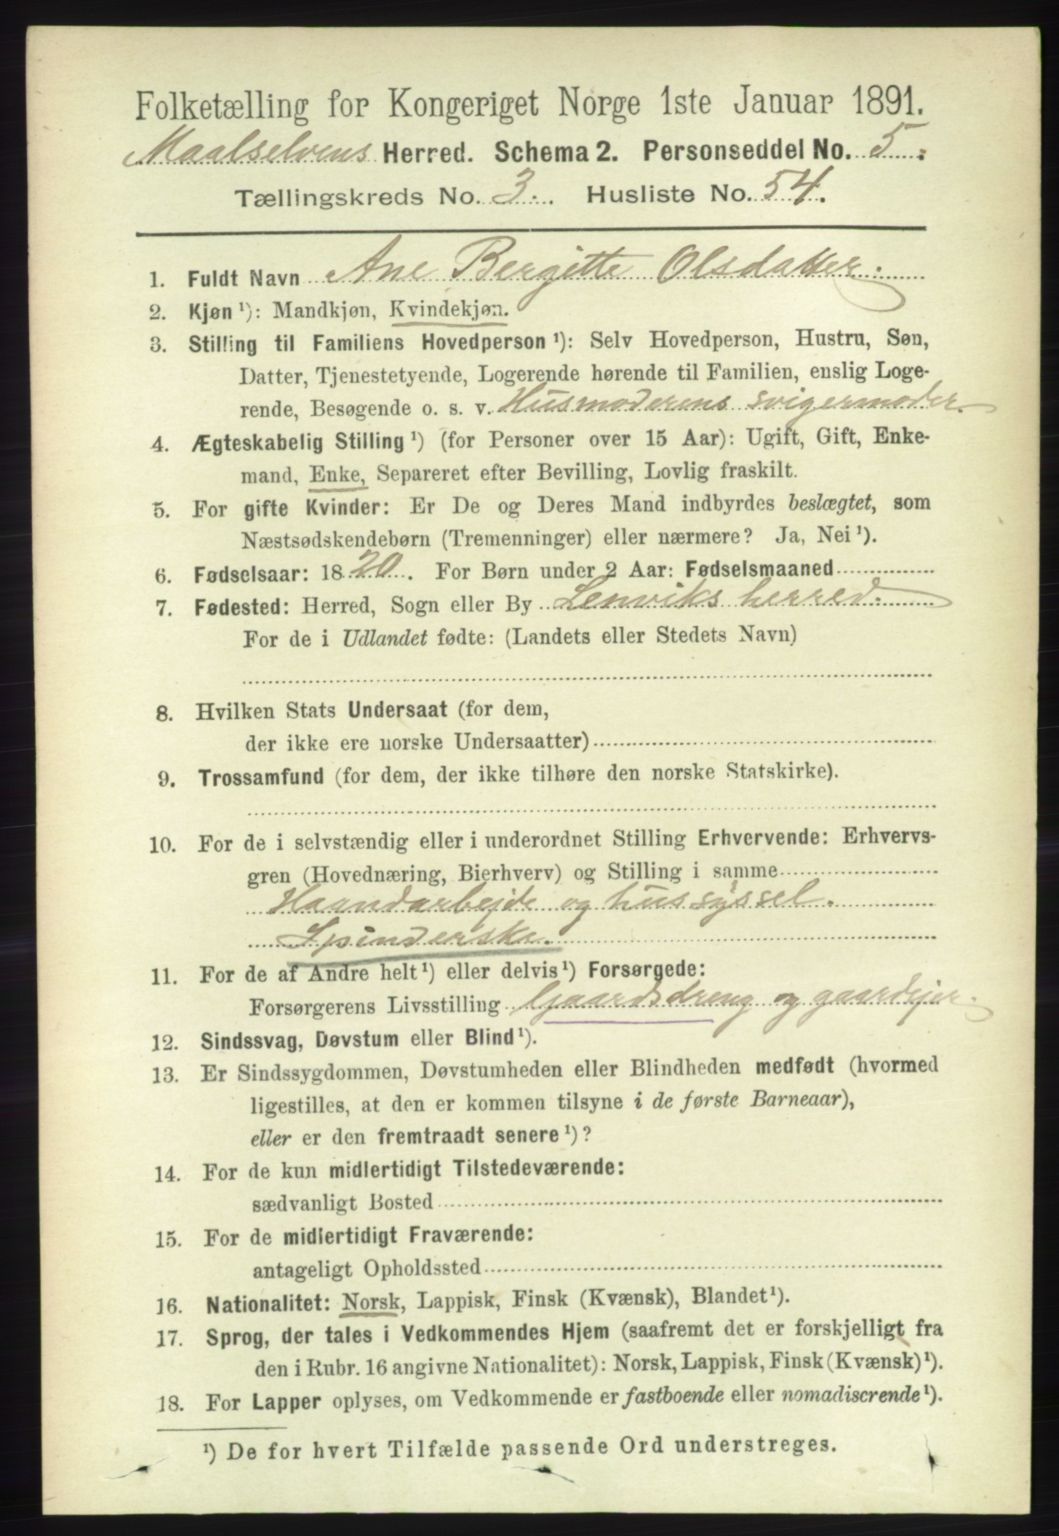 Folketælling for Kongeriget Norge 1ste Januar 1891.
Maalselvens Herred. Schema 2. Personseddel No. 5.
Tællingskreds No. 3. Husliste No. 54.
1. Fuldt Navn Ane Bergitte Olsdatter.
2. Kjøn ¹): Mandkjøn, Kvindekjøn.
3. Stilling til Familiens Hovedperson ¹): Selv Hovedperson, Hustru, Søn,
Datter, Tjenestetyende, Logerende hørende til Familien, enslig Loge-
rende, Besøgende o. s. v. Husmoderens svigermoder.
4. Ægteskabelig Stilling ¹) (for Personer over 15 Aar): Ugift, Gift, Enke-
mand, Enke, Separeret efter Bevilling, Lovlig fraskilt.
5. For gifte Kvinder: Er De og Deres Mand indbyrdes beslægtet, som
Næstsødskendebørn (Tremenninger) eller nærmere? Ja, Nei ¹).
6. Fødselsaar: 1820. For Børn under 2 Aar: Fødselsmaaned
7. Fødested: Herred, Sogn eller By Lenviks herred.
For de i Udlandet fødte: (Landets eller Stedets Navn)
8. Hvilken Stats Undersaat (for dem,
der ikke ere norske Undersaatter)
9. Trossamfund (for dem, der ikke tilhøre den norske Statskirke).
10. For de i selvstændig eller i underordnet Stilling Erhvervende: Erhvervs-
gren (Hovednæring, Bierhverv) og Stilling i samme
Haandarbejde og hussyssel.
Spinderske.
11. For de af Andre helt ¹) eller delvis ¹) Forsørgede:
Forsørgerens Livsstilling Gaardsdreng og gaardejer.
12. Sindssvag, Døvstum eller Blind ¹).
13. Er Sindssygdommen, Døvstumheden eller Blindheden medfødt (hvormed
ligestilles, at den er kommen tilsyne i de første Barneaar),
eller er den fremtraadt senere ¹)?
14. For de kun midlertidigt Tilstedeværende:
sædvanligt Bosted
15. For de midlertidigt Fraværende:
antageligt Opholdssted
16. Nationalitet: Norsk, Lappisk, Finsk (Kvænsk), Blandet ¹).
17. Sprog, der tales i Vedkommendes Hjem (saafremt det er forskjelligt fra
den i Rubr. 16 angivne Nationalitet): Norsk, Lappisk, Finsk (Kvænsk) ¹).
18. For Lapper oplyses, om Vedkommende er fastboende eller nomadiserende ¹).
¹) De for hvert Tilfælde passende Ord understreges.